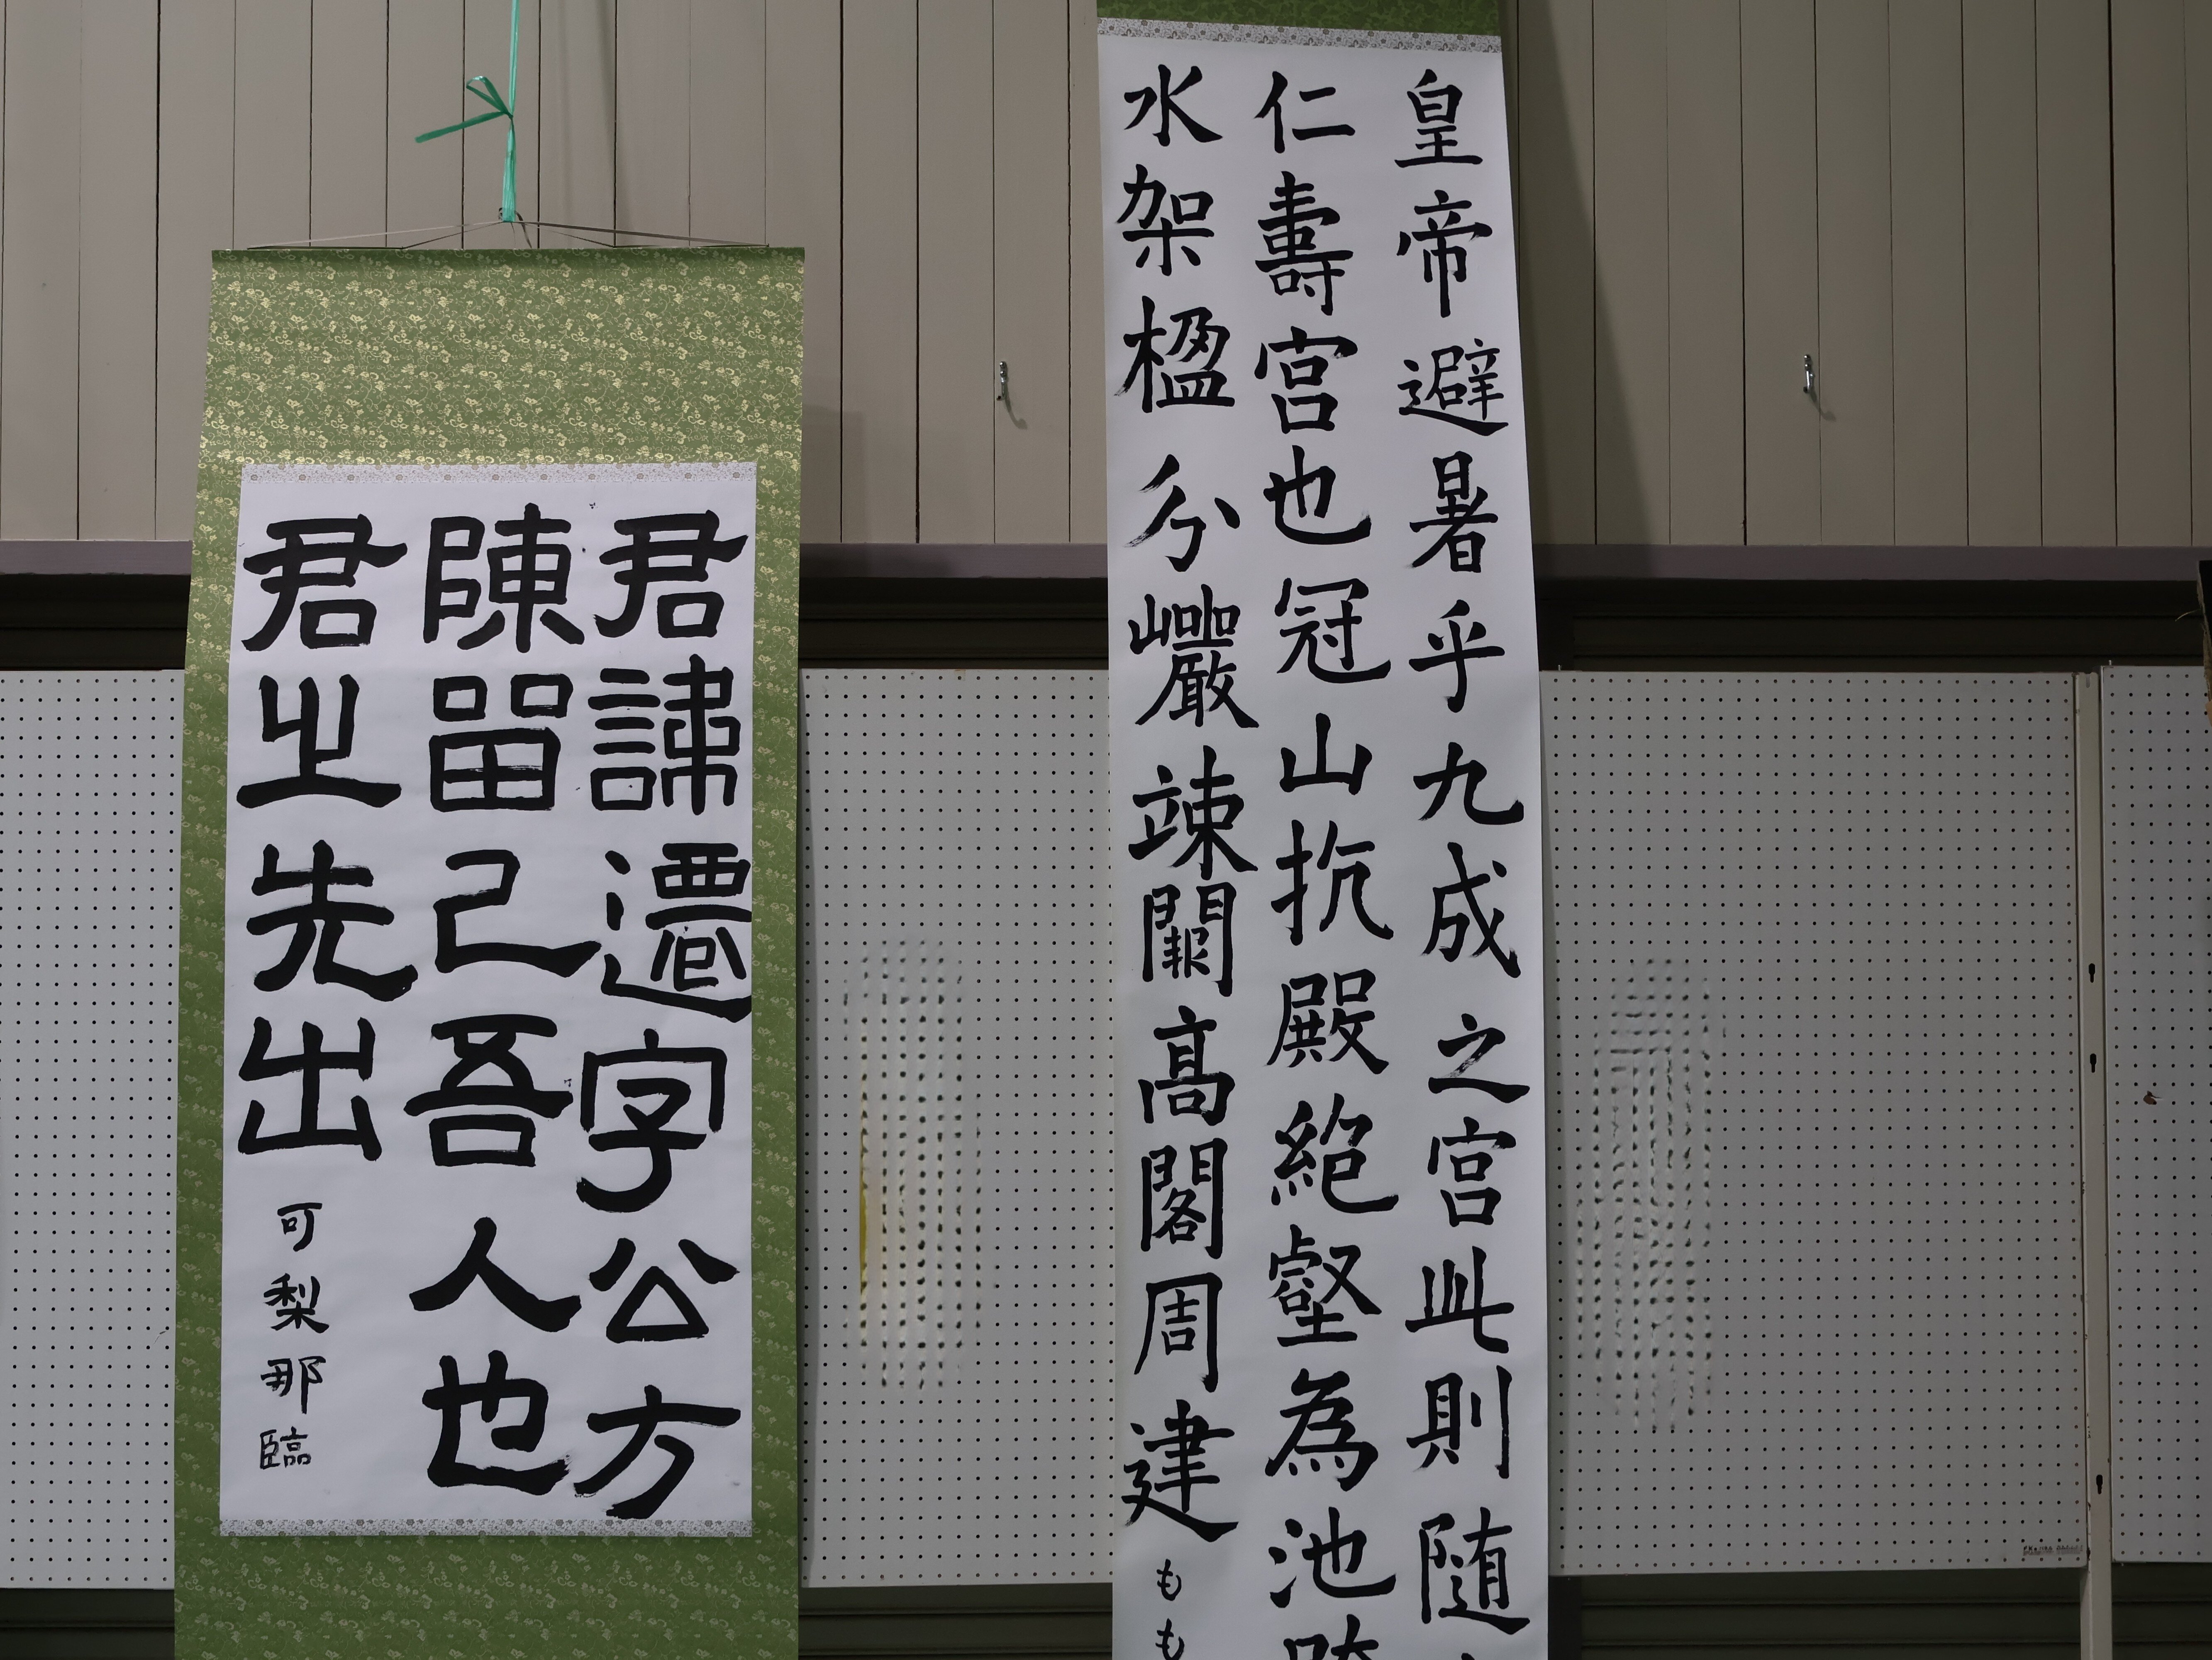 皇帝避暑乎九成之宮此則随
仁壽宮也冠山抗殿絶壑為池跨
水架楹分巖竦闕高閣周建もも
君諱遷字公方
陳留己吾人也
君之先出可梨那臨